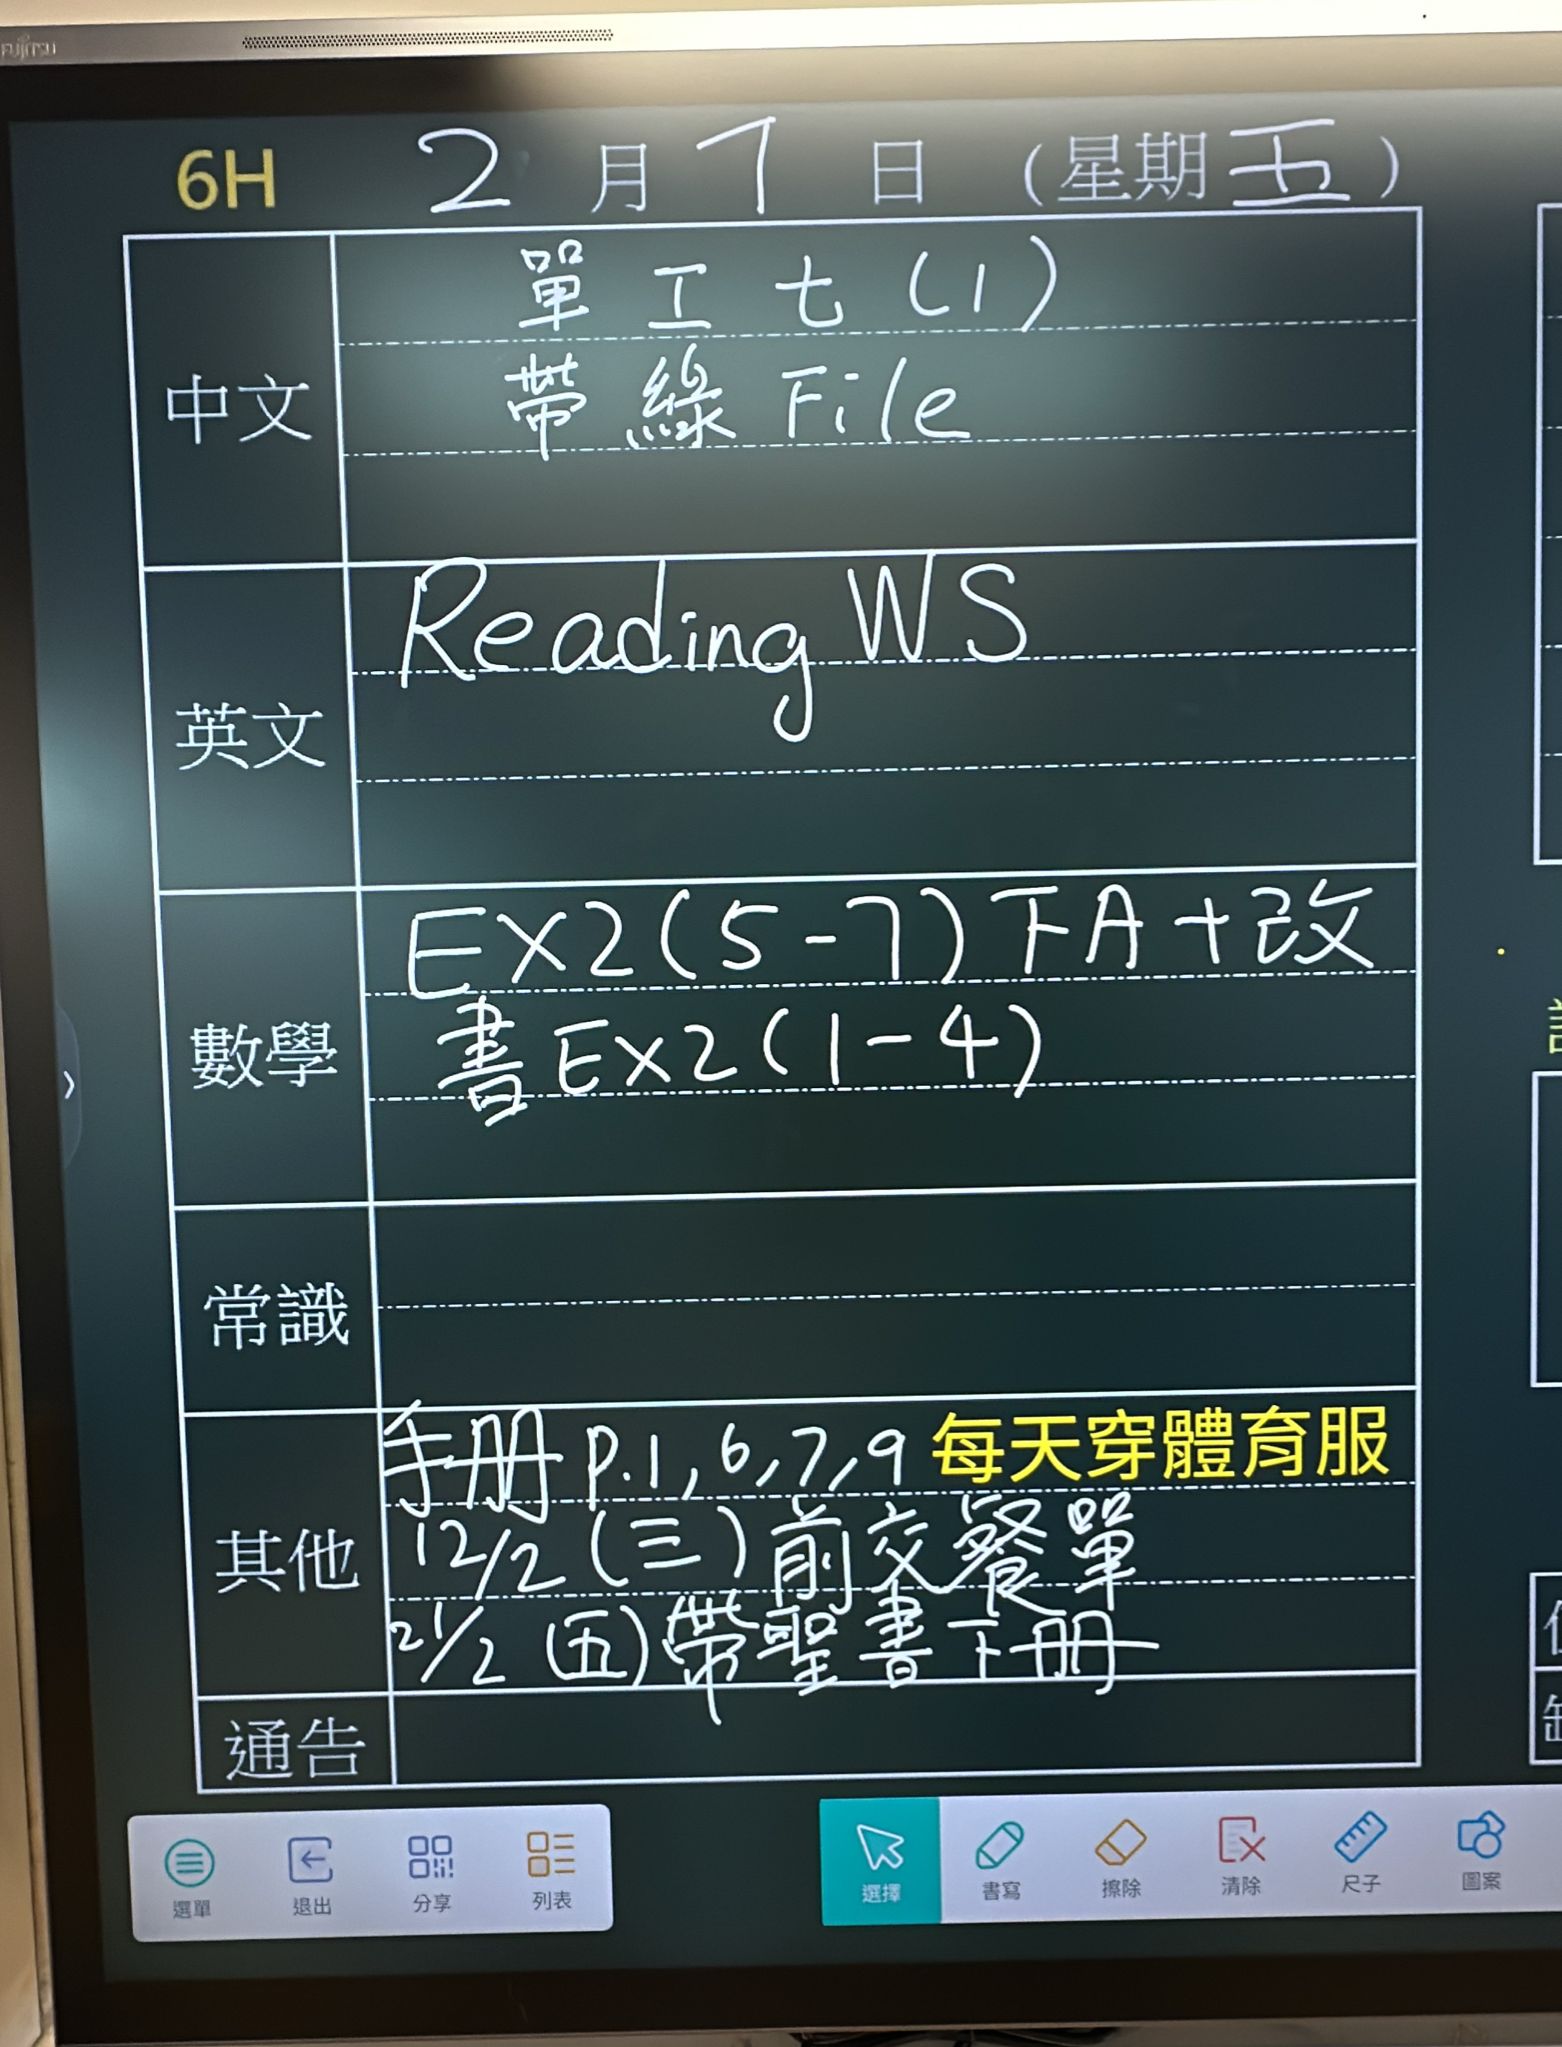 FUJITSU
6H 2月7日(星期五)
中文
單工七(1)
帶綠File
英文
Reading WS
數學
EX2(5-7)下A+改
書EX2(1-4)
常識
其他
手册 P.1,6,7,9 每天穿體育服
12/2(三)前交餐單
21/2(五)帶聖書下冊
通告
選單 退出 分享 列表 選擇 書寫 擦除 清除 尺子 圖案